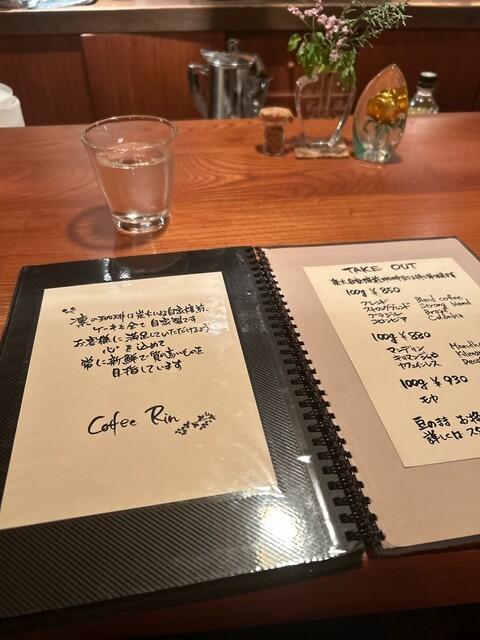 凛の珈琲は炭火による自家焙煎、
ケーキも全て自家製です
お客様に満足していただけるよう
心を込めて
常に新鮮で質の高いものを
目指しています
Coffee Rin
TAKE OUT
100g ¥850
ブレンド Blend coffee
ストロングブレンド Strong blend
ブラジル Brazil
コロンビア
100g ¥880
マンデリン
キリマンジャロ
カフェインレス
100g ¥930
モカ
豆の詰
詳しくは